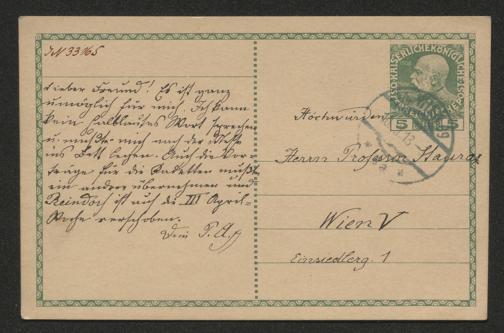 IN 33965
Lieber Freund! Es ist ganz
unmöglich für mich. Ich kann
kein halblautes Wort sprechen
u. mußte mich nach der Messe
ins Bett legen. Auch die Vor-
träge für die Kadetten mußte
ein anderer übernehmen und
ist auf die III April-
Woche verschoben.
Dein P. A.
KAISERLICHE KÖNIGLICHE
5 5
Hochwürden
Herrn Professor
Wien V
Einsiedlerg. 1